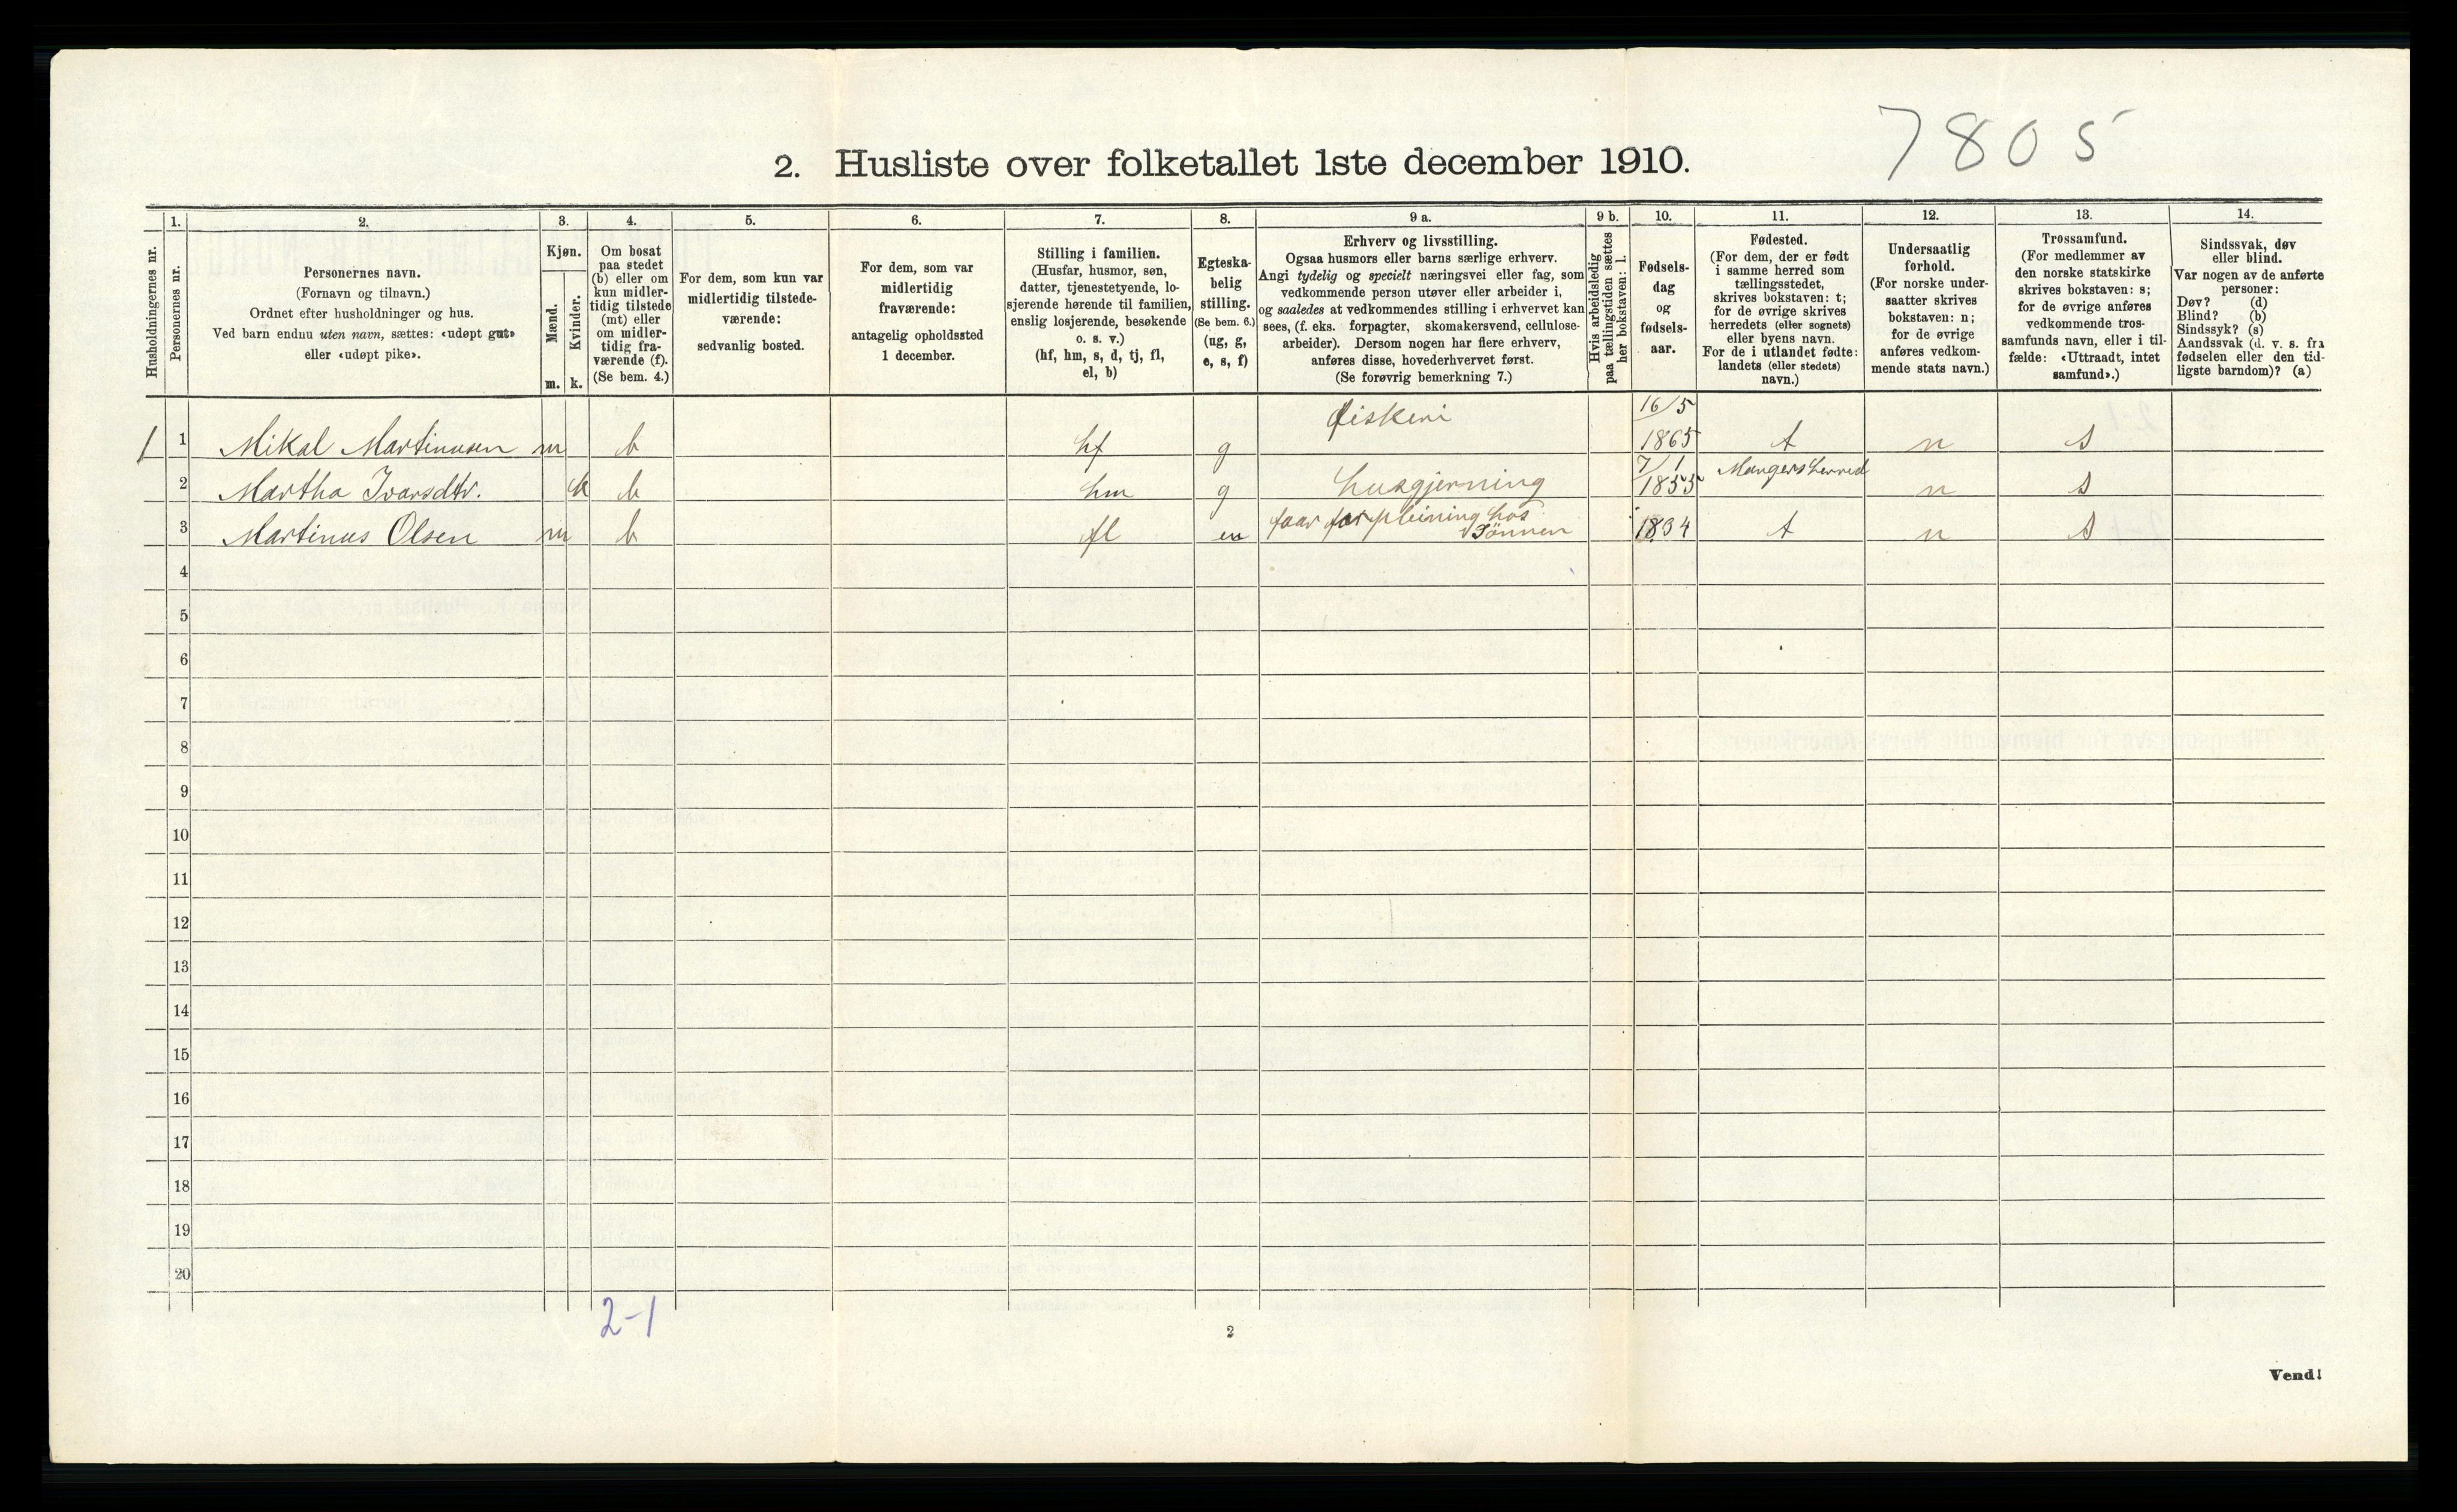 7805
2. Husliste over folketallet 1ste december 1910.
Husholdningernes nr.
1.
Personernes nr.
2.
Personernes navn.
(Fornavn og tilnavn.)
Ordnet efter husholdninger og hus.
Ved barn endnu uten navn, sættes: «udøpt gut»
eller «udøpt pike».
3.
Kjøn.
Mænd.
Kvinder.
m. k.
4.
Om bosat
paa stedet
(b) eller om
kun midler-
tidig tilstede
(mt) eller
om midler-
tidig fra-
værende (f).
(Se bem. 4.)
5.
For dem, som kun var
midlertidig tilstede-
værende:
sedvanlig bosted.
6.
For dem, som var
midlertidig
fraværende:
antagelig opholdssted
1 december.
7.
Stilling i familien.
(Husfar, husmor, søn,
datter, tjenestetyende, lo-
sjerende hørende til familien,
enslig losjerende, besøkende
o. s. v.)
(hf, hm, s, d, tj, fl,
el, b)
8.
Egteska-
belig
stilling.
(Se bem. 6.)
(ug, g,
e, s, f)
9 a.
Erhverv og livsstilling.
Ogsaa husmors eller barns særlige erhverv.
Angi tydelig og specielt næringsvei eller fag, som
vedkommende person utøver eller arbeider i,
og saaledes at vedkommendes stilling i erhvervet kan
sees, (f. eks. forpagter, skomakersvend, cellulose-
arbeider). Dersom nogen har flere erhverv,
anføres disse, hovederhvervet først.
(Se forøvrig bemerkning 7.)
9 b.
Hvis arbeidsledig
paa tællingstiden sættes
her bokstaven: l.
10.
Fødsels-
dag
og
fødsels-
aar.
11.
Fødested.
(For dem, der er født
i samme herred som
tællingsstedet,
skrives bokstaven: t;
for de øvrige skrives
herredets (eller sognets)
eller byens navn.
For de i utlandet fødte:
landets (eller stedets)
navn.)
12.
Undersaatlig
forhold.
(For norske under-
saatter skrives
bokstaven: n;
for de øvrige
anføres vedkom-
mende stats navn.)
13.
Trossamfund.
(For medlemmer av
den norske statskirke
skrives bokstaven: s;
for de øvrige anføres
vedkommende tros-
samfunds navn, eller i til-
fælde: «Uttraadt, intet
samfund».)
14.
Sindssvak, døv
eller blind.
Var nogen av de anførte
personer:
Døv? (d)
Blind? (b)
Sindssyk? (s)
Aandssvak (d. v. s. fra
fødselen eller den tid-
ligste barndom)? (a)
1 1 Mikal Martinusen m b hf g Fiskeri 16/5 1865 t n s
2 Martha Ivarsdtr. k b hm g husgjerning 7/1 1855 Mangers herred n s
3 Martinus Olsen m b fl faar forpleining hos Sönnen 1834 t n s
4
5
6
7
8
9
10
11
12
13
14
15
16
17
18
19
20
2-1
2
Vend!